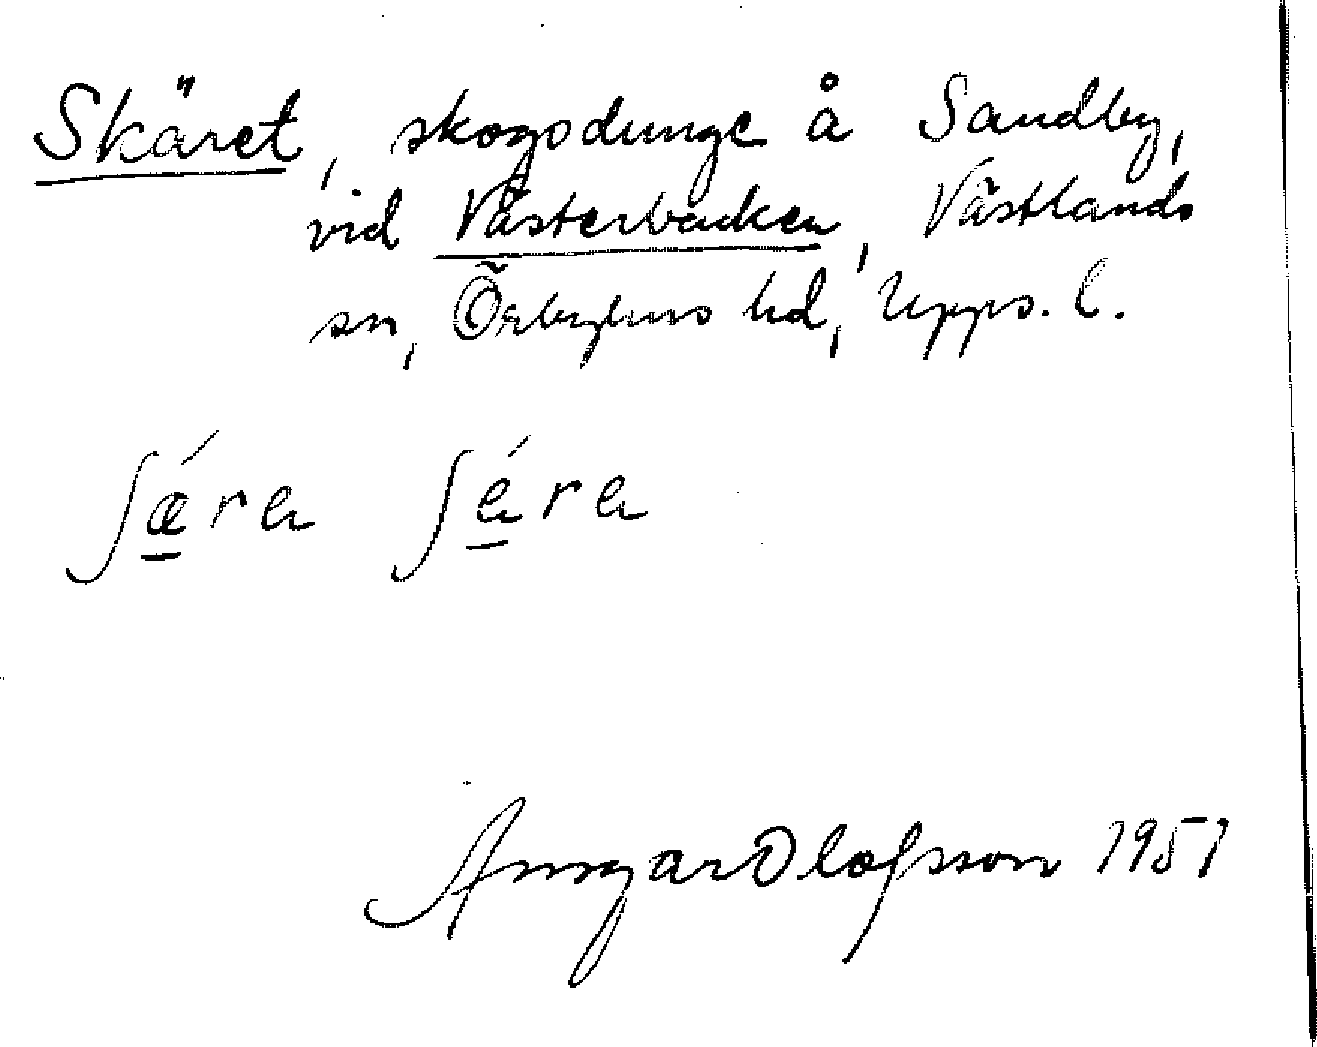 Skäret, skogsdunge å Sandby,
vid Västerbacken, Västlands
sn, Örbyhus hd, Upps. l.
ʃǽra ʃéra
Ansgar Olofsson 1951